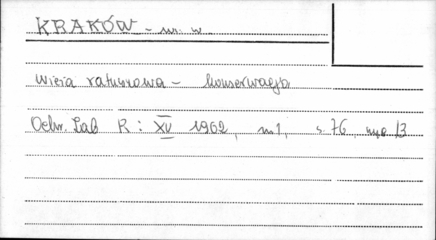 KRAKÓW - m. w
Wieża ratuszowa - konserwacja
Ochr. Zab R: XV 1962, n 1, s. 76, 13